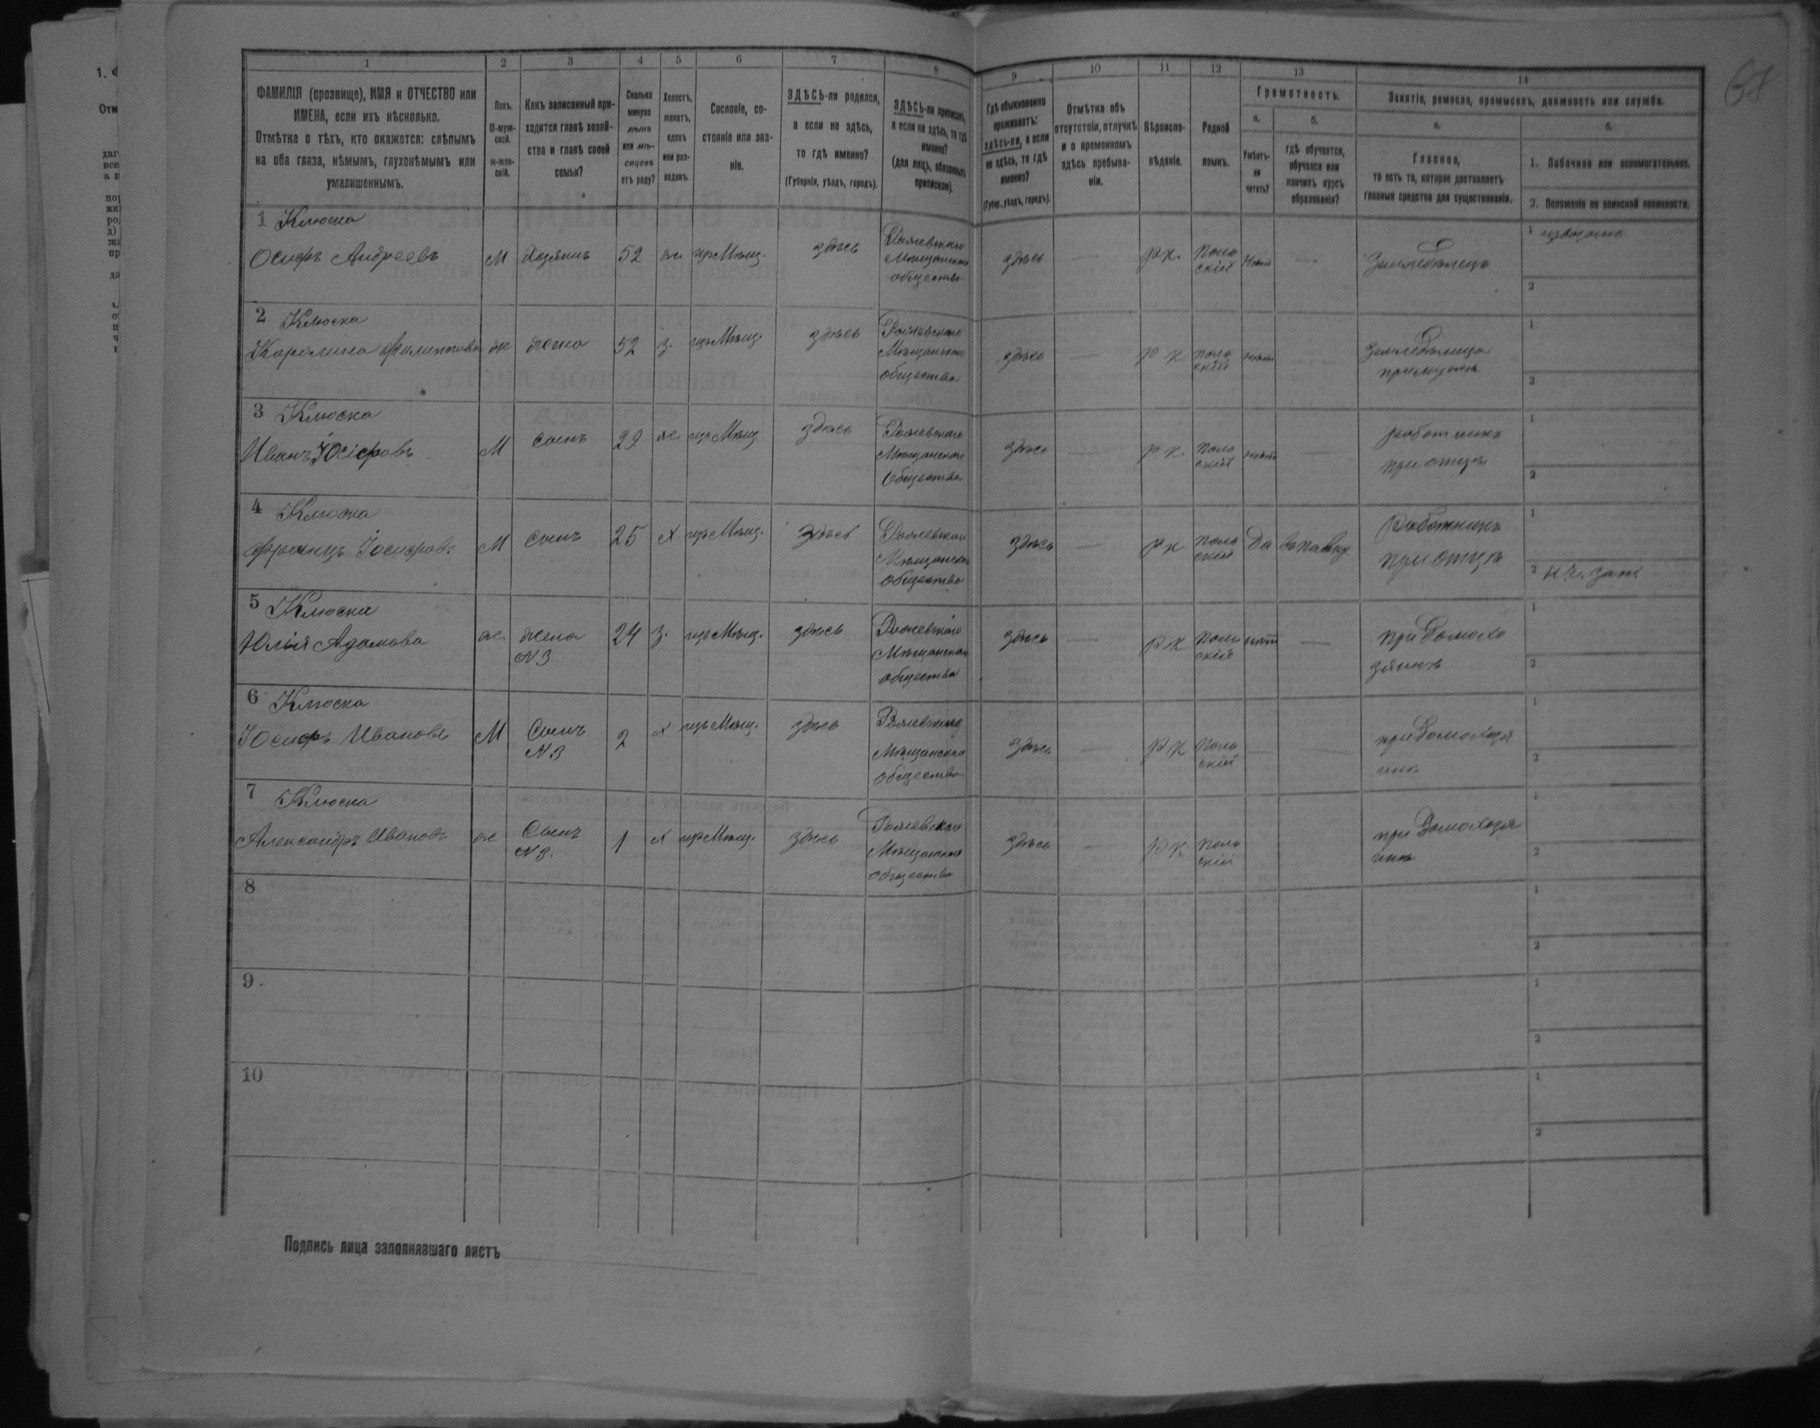 68
1 2 3 4 5 6 7 8 9 10 11 12 13 14
ФАМИЛІЯ (прозвище), ИМЯ и ОТЧЕСТВО или
ИМЕНА, если ихъ нѣсколько.
Отмѣтка о тѣхъ, кто окажется: слѣпымъ
на оба глаза, нѣмымъ, глухонѣмымъ или
умалишеннымъ.
Полъ.
М-муж-
ской.
ж-жен-
скій.
Какъ записанный при-
ходится главѣ хозяй-
ства и главѣ своей
семьи?
Сколько
минуло
лѣтъ
или мѣ-
сяцевъ
отъ роду?
Холостъ,
женатъ,
вдовъ
или раз-
веденъ.
Сословіе, со-
стояніе или зва-
ніе.
ЗДѢСЬ-ли родился,
а если не здѣсь,
то гдѣ именно?
(Губернія, уѣздъ, городъ).
ЗДѢСЬ-ли приписанъ,
а если не здѣсь, то гдѣ
именно?
(для лицъ, обязанныхъ
припискою).
Гдѣ обыкновенно
проживаетъ:
здѣсь-ли, а если
не здѣсь, то гдѣ
именно?
(Губер., уѣздъ, городъ).
Отмѣтка объ
отсутствіи, отлучкѣ
и о временномъ
здѣсь пребыва-
ніи.
Вѣроиспо-
вѣданіе.
Родной
языкъ.
Грамотность.
а.
Умѣетъ-
ли
читать?
б.
гдѣ обучается,
обучался или
кончилъ курсъ
образованія?
Занятіе, ремесло, промыселъ, должность или служба.
а.
Главное,
то есть то, которое доставляетъ
главныя средства для существованія.
б.
1. Побочное или вспомогательное.
2. Положеніе по воинской повинности.
1 Клюска
Осифъ Андреевъ М Хозяинъ 52 ж. Мѣщ. здѣсь
Мѣщанское
общество
здѣсь — Р К. Поль
скій нѣт — Земледѣлецъ
1
2
2 Клюска
Каролина Филиппова ж жена 52 з. Мѣщ здѣсь
Мѣщанское
общество
здѣсь — Р К поль
скій нѣт — Земледѣлица
при мужѣ
1
2
3 Клюска
Иванъ Юсіфовъ М сынъ 29 ж. Мѣщ здѣсь
Мѣщанское
Общество
здѣсь — Р К. Поль
скій нѣт — работникъ
при отцѣ
1
2
4 Клюска
Францъ Іосифовъ М сынъ 25 Х Мѣщ. здѣсь
Мѣщанское
общество
здѣсь — Р К поль
скій да Работникъ
при отцѣ
1
2
5 Клюска
Юлія Адамова ж. жена
N 3 24 з. Мѣщ. здѣсь
Мѣщанское
общество
здѣсь — Р К Поль
скій нѣт — при домохо
зяинѣ
1
2
6 Клюска
Юсифъ Ивановъ М Сынъ
N 3 2 Х Мѣщ. здѣсь
Мѣщанское
общество
здѣсь — Р К Поль
скій при домохозя
инѣ
1
2
7 Клюска
Александръ Ивановъ ж Сынъ
N 3. 1 Х Мѣщ. здѣсь
Мѣщанское
общество
здѣсь — Р К Поль
скій при домохозя
инѣ
1
2
8
1
2
9.
1
2
10
1
2
Подпись лица заполнявшаго листъ